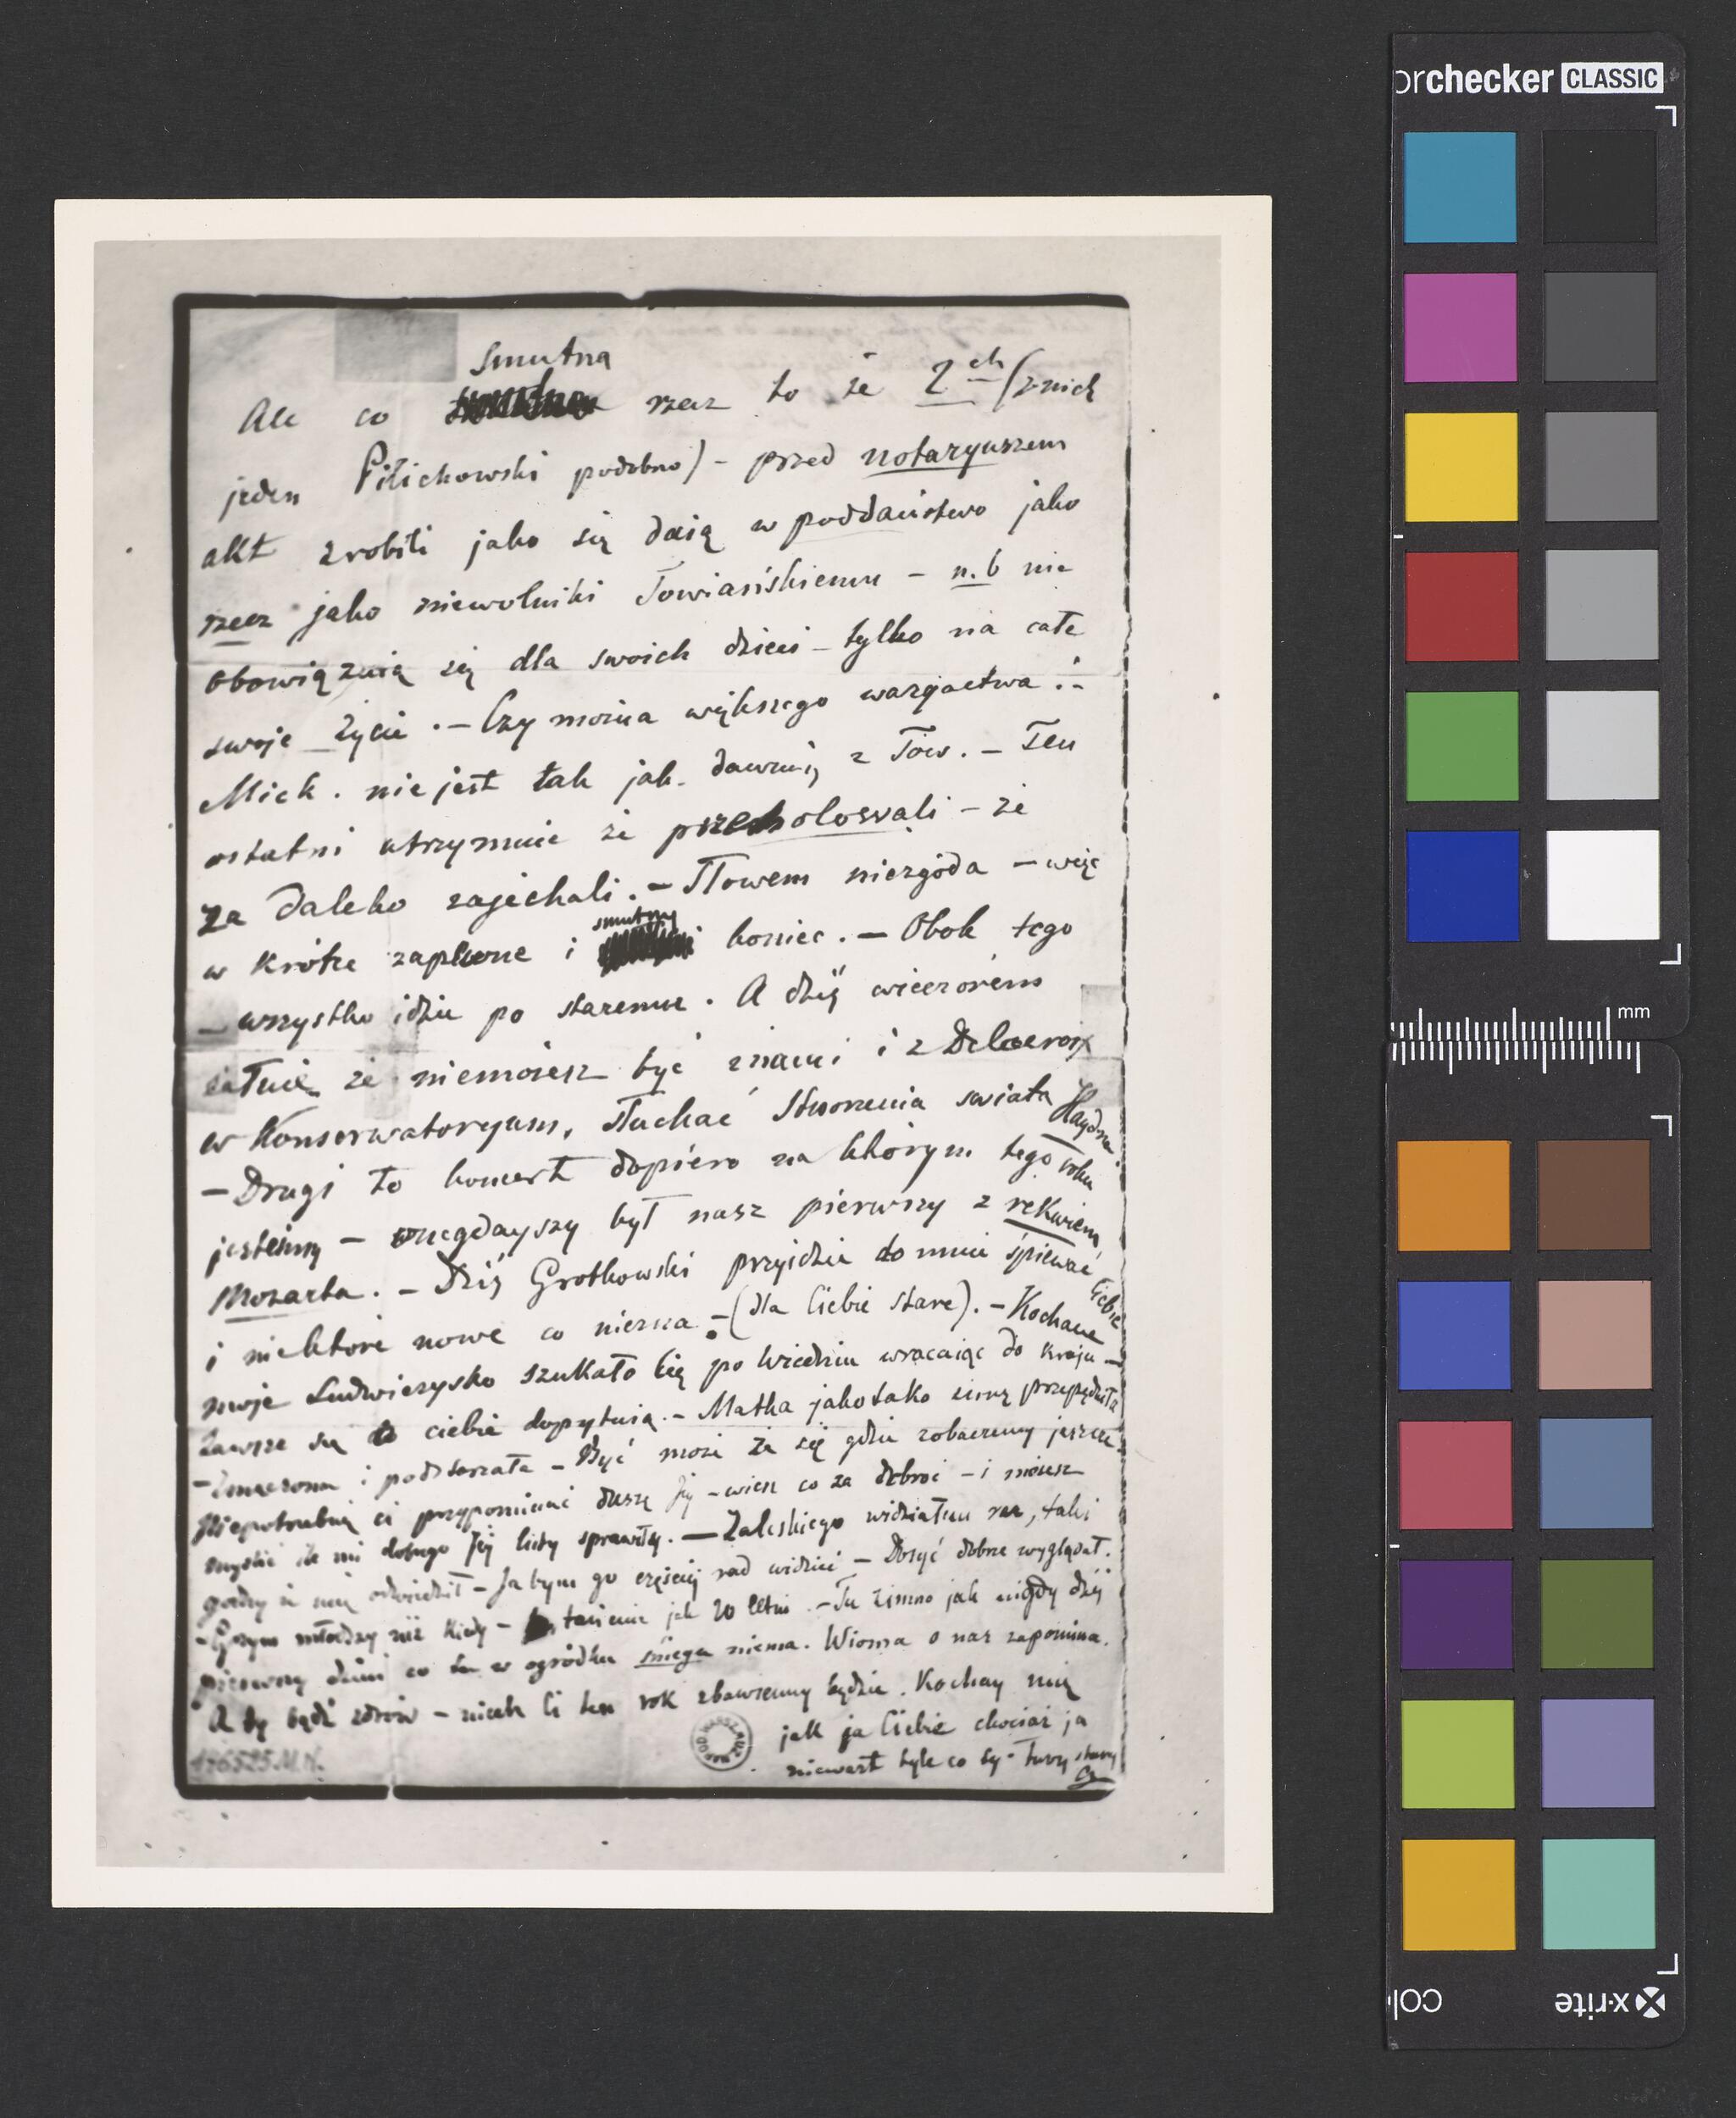 smutna
Ale co rzecz to że 2ch (z nich
jeden Pilichowski podobno) – przed notaryuszem
akt zrobili jako się daią w poddaństwo jako
rzecz jako niewolniki Towiańskiemu – n.b nie
obowiązuią się dla swoich dzieci – tylko na całe
swoje życie. – Czy można większego waryactwa. –
Mick. nie jest tak jak dawniej z Tow. – Ten
ostatni utrzymuie że – że
za daleko zajechali. – Słowem niezgoda – więc
smutny
w krótce zapewne i koniec. – Obok tego
– wszystko idzie po staremu. A dziś wieczorem
żałuię że niemożesz być z nami i z Delacroix
w Konserwatoryum, słuchać Stworzenia swiata Haydna.
– Drugi to koncert dopiero na którym tego roku
jesteśmy – onegdayszy był nasz pierwszy z rekwiem
Mozarta. – Dziś Grotkowski przyidzie do mnie śpiewać
i niektóre nowe co nieznasz – (dla Ciebie stare). – Kochane
Ciebie
moje Ludwiczysko szukało Cię po Wiedniu wracaiąc do kraju –
Zawsze się o ciebie dopytuią. – Matka jako tako zimę przepędziła
– Zmęczona i podstarzała – Być może że się gdzie zobaczemy jeszcze.
Niepotrzebuię ci przypominać duszę Jéj – wiesz co za dobroć – i możesz
myśleć ile mi dobrego Jéj listy sprawiły. – Zaleskiego widziałem raz, taki
godny że mię odwiedził – Ja bym go częściej rad widzieć – Dosyć dobrze wyglądał.
– Grzym młodszy niż kiedy – tańcuie jak 20 letni. – Tu zimno jak nigdy dziś
pierwszy dzień co tu w ogródku śniegu niema. Wiosna o nas zapomina.
A ty bądź zdrów – niech Ci ten rok zbawienny będzie. Kochay mię
jak ja Ciebie chociaż ja
niewart tyle co ty. Twoy stary
Ch